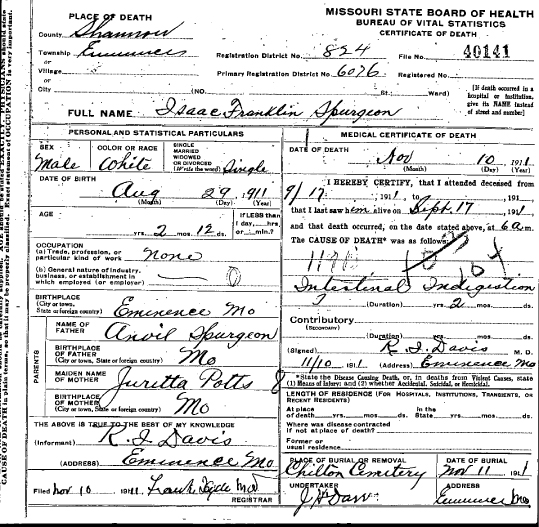 MISSOURI STATE BOARD OF HEALTH
BUREAU OF VITAL STATISTICS
CERTIFICATE OF DEATH
PLACE OF DEATH
County Shannon
Township Eminence
or
Village
or
City (NO. St. Ward)
Registration District No. 824 File No. 40141
Primary Registration District No. 6076 Registered No.
[If death occurred in a
hospital or institution,
give its NAME instead
of street and number]
FULL NAME Isaac Franklin Spurgeon
PERSONAL AND STATISTICAL PARTICULARS
SEX
Male
COLOR OR RACE
White
SINGLE
MARRIED
WIDOWED
OR DIVORCED
(Write the word) Single
DATE OF BIRTH
Aug 29 1911
(Month) (Day) (Year)
AGE
yrs. 2 mos. 12 ds.
If LESS than
1 day, hrs.
or min.?
OCCUPATION
(a) Trade, profession, or
particular kind of work none
(b) General nature of industry,
business, or establishment in
which employed (or employer)
BIRTHPLACE
(City or town,
State or foreign country) Eminence Mo
PARENTS
NAME OF
FATHER Anvil Spurgeon
BIRTHPLACE
OF FATHER
(City or town, State or foreign country) Mo
MAIDEN NAME
OF MOTHER Juretta Potts
BIRTHPLACE
OF MOTHER
(City or town, State or foreign country) Mo
THE ABOVE IS TRUE TO THE BEST OF MY KNOWLEDGE
(Informant) R. I Davis
(ADDRESS) Eminence Mo
Filed Nov 10 1911 Frank Hyde MD
REGISTRAR
MEDICAL CERTIFICATE OF DEATH
DATE OF DEATH
Nov 10 1911
(Month) (Day) (Year)
I HEREBY CERTIFY, that I attended deceased from
9/17 1911, to , 191
that I last saw him alive on Sept. 17 1911
and that death occurred, on the date stated above, at 6 a m.
The CAUSE OF DEATH* was as follows:
104
Intestinal Indigestion
(Duration) yrs. 2 mos. ds.
Contributory
(SECONDARY)
(Duration) yrs. mos. ds.
(Signed) R. I. Davis M. D.
11/10 1911 (Address) Eminence Mo
*State the Disease Causing Death, or, in deaths from Violent Causes, state
(1) Means of Injury; and (2) whether Accidental, Suicidal, or Homicidal.
LENGTH OF RESIDENCE (FOR HOSPITALS, INSTITUTIONS, TRANSIENTS, OR
RECENT RESIDENTS)
At place
of death yrs. mos. ds.
In the
State yrs. mos. ds.
Where was disease contracted
if not at place of death?
Former or
usual residence
PLACE OF BURIAL OR REMOVAL
Chilton Cemetery
DATE OF BURIAL
Nov 11 1911
UNDERTAKER
ADDRESS
Eminence Mo
CAUSE OF DEATH in plain terms, so that it may be properly classified. Exact statement of OCCUPATION is very important.